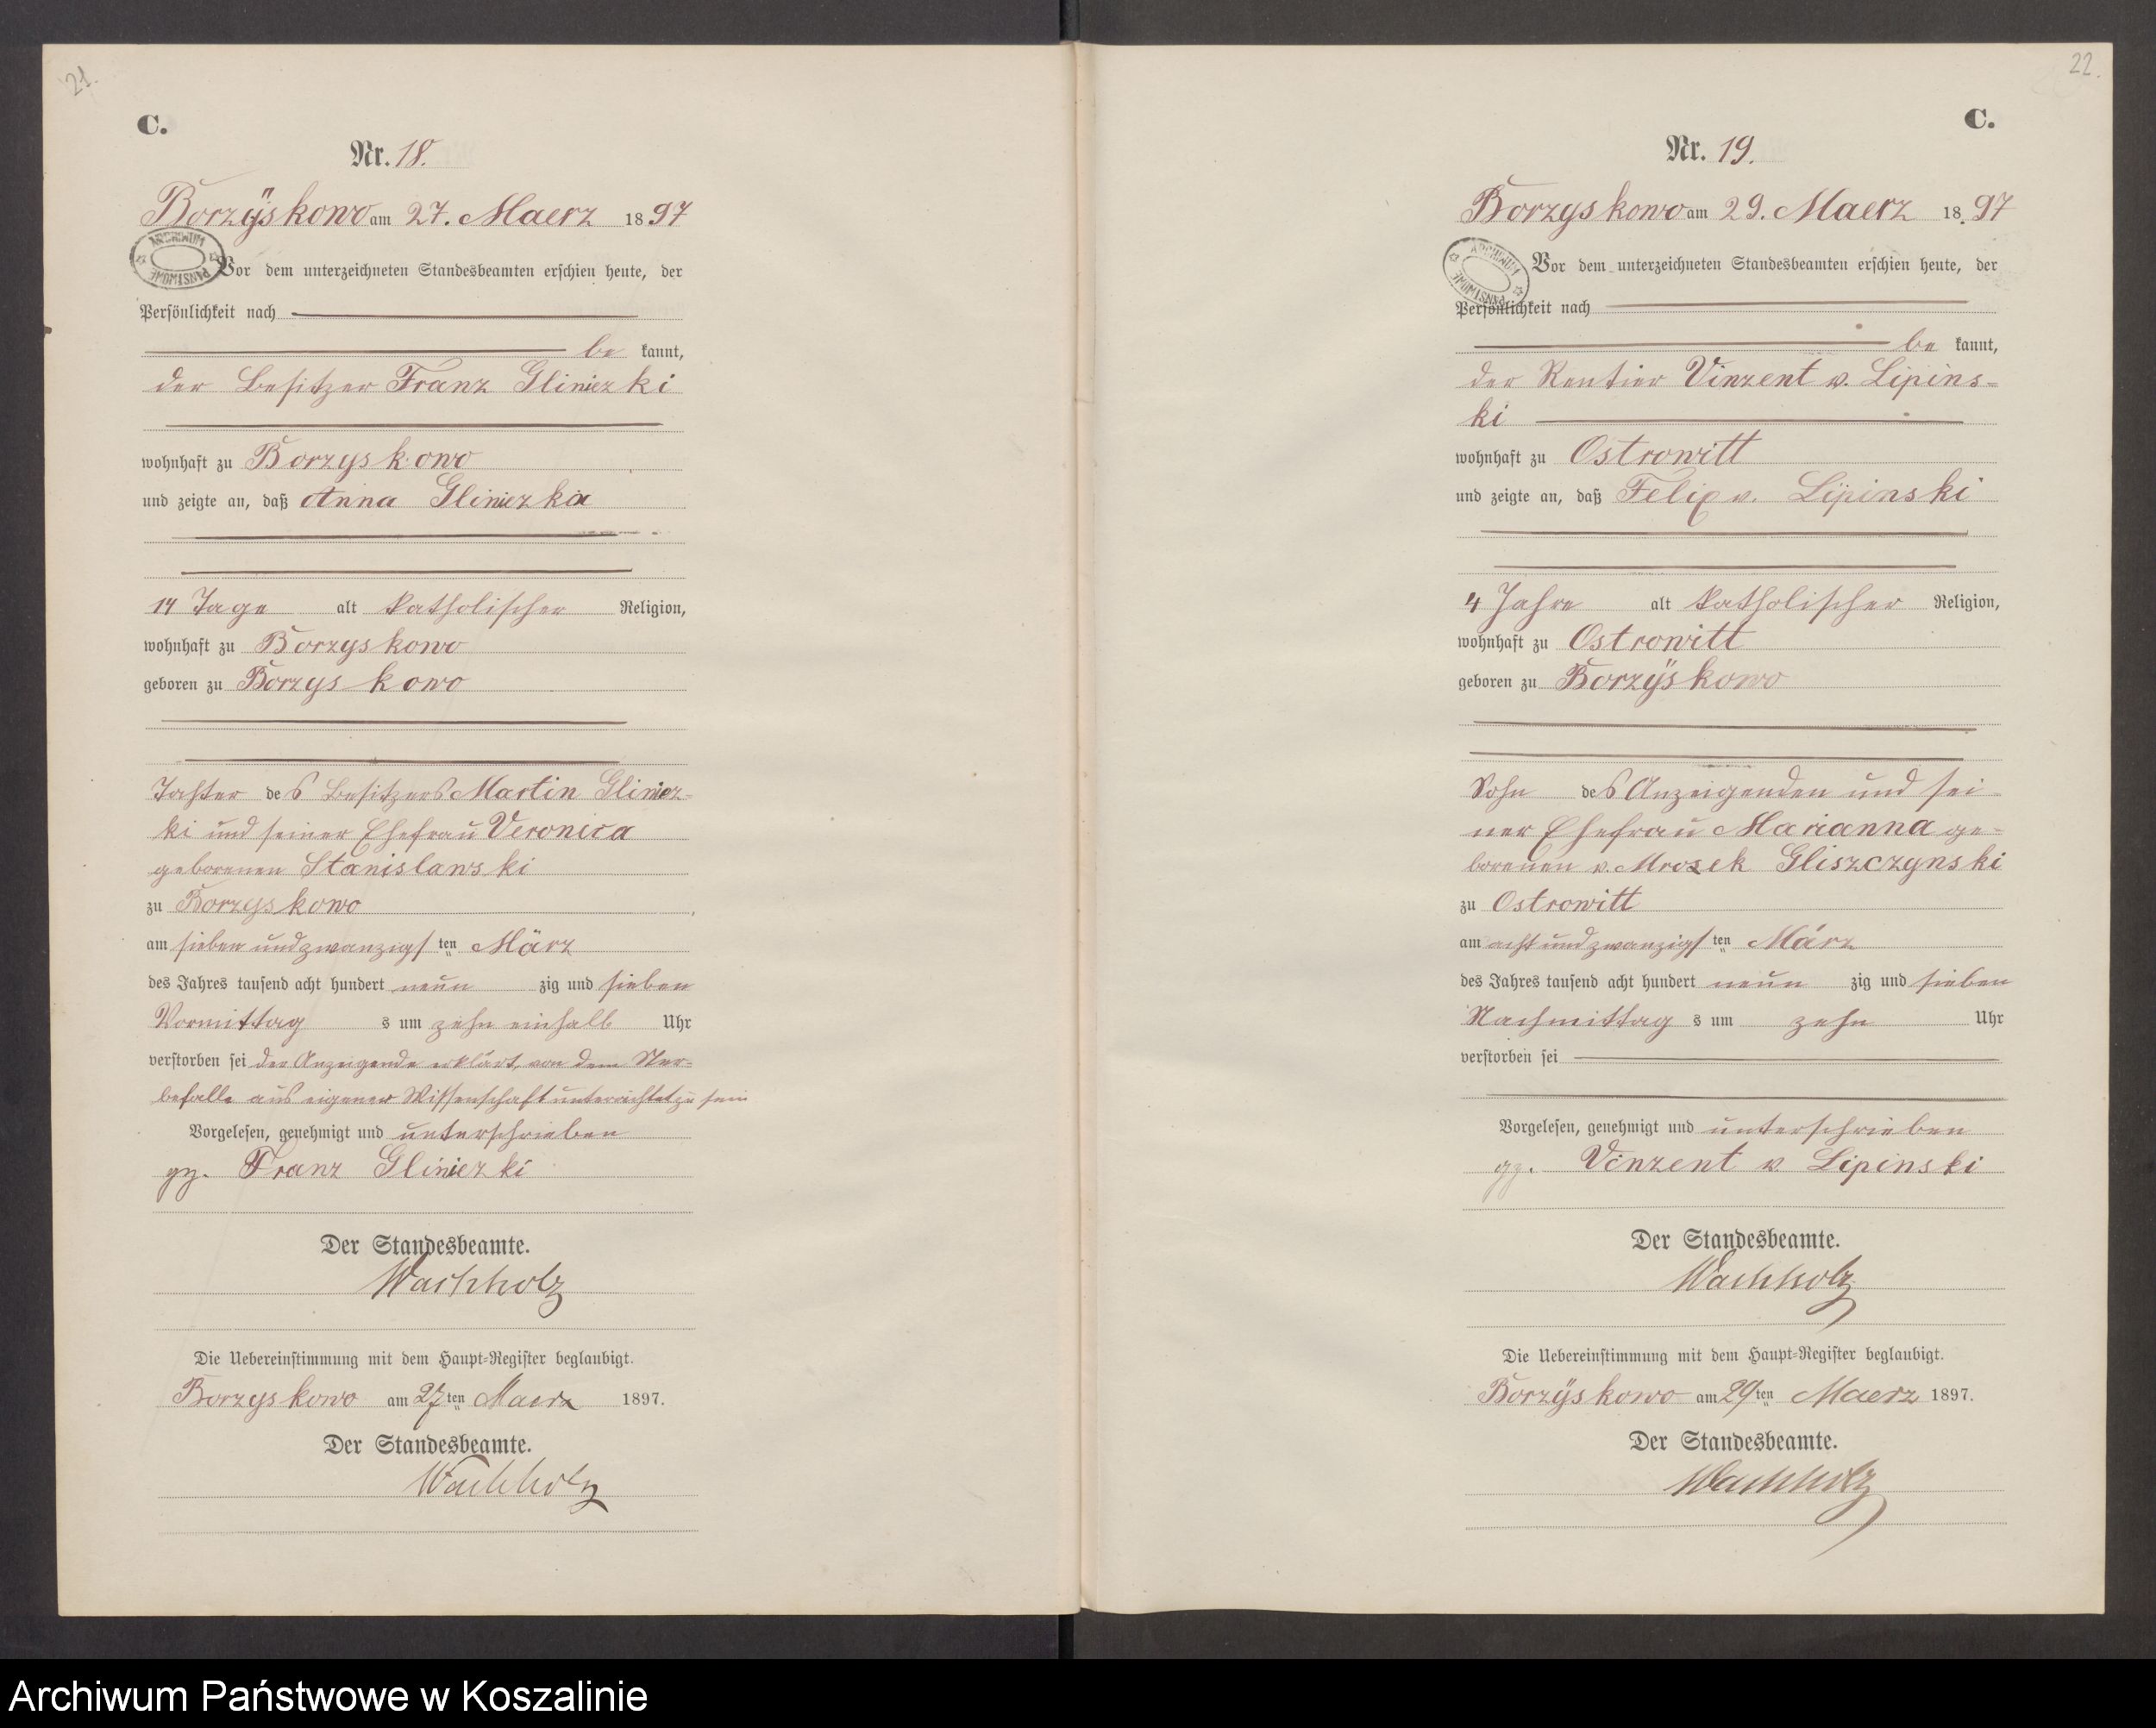 21.
C.
Nr. 18.
Borzÿskowo am 27. Maerz 1897
ARCHIWUM PAŃSTWOWE
Vor dem unterzeichneten Standesbeamten erschien heute, der
Persönlichkeit nach
be kannt,
der Besitzer Franz Gliniezki
wohnhaft zu Borzyskowo
und zeigte an, daß Anna Gliniezka
14 Tage alt katholischer Religion,
wohnhaft zu Borzyskowo
geboren zu Borzyskowo
Tochter des Besitzers Martin Gliniez-
ki und seiner Ehefrau Veronica
geborenen Stanislawski
zu Borzyskowo
am sieben und zwanzigsten März
des Jahres tausend acht hundert neun zig und sieben
Vormittags um zehn einhalb Uhr
verstorben sei der Anzeigende erklärt, von dem Ster-
befalle aus eigener Wissenschaft unterrichtet zu sein
Vorgelesen, genehmigt und unterschrieben
gz. Franz Gliniezki
Der Standesbeamte.
Wachholz
Die Uebereinstimmung mit dem Haupt-Register beglaubigt.
Borzyskowo am 27ten Maerz 1897.
Der Standesbeamte.
Wachholz
22.
C.
Nr. 19.
Borzyskowo am 29. Maerz 18.97
ARCHIWUM PAŃSTWOWE
Vor dem unterzeichneten Standesbeamten erschien heute, der
Persönlichkeit nach
be kannt,
der Rentier Vinzent v. Lipins-
ki
wohnhaft zu Ostrowitt
und zeigte an, daß Felix v. Lipinski
4 Jahre alt katholischer Religion,
wohnhaft zu Ostrowitt
geboren zu Borzÿskowo
Sohn des Anzeigenden und sei-
ner Ehefrau Marianna ge-
borenen v. Mrozek Gliszczynski
zu Ostrowitt
am acht und zwanzigsten März
des Jahres tausend acht hundert neun zig und sieben
Nachmittags um zehn Uhr
verstorben sei
Vorgelesen, genehmigt und unterschrieben
gz. Vinzent v Lipinski
Der Standesbeamte.
Wachholz
Die Uebereinstimmung mit dem Haupt-Register beglaubigt.
Borzÿskowo am 29ten Maerz 1897.
Der Standesbeamte.
Wachholz
Archiwum Państwowe w Koszalinie